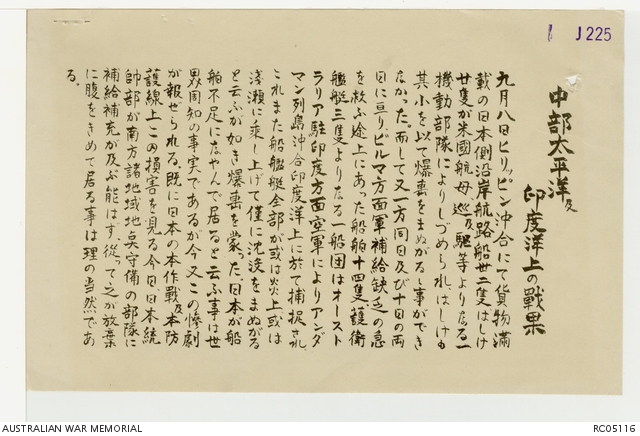 J225
中部太平洋及
印度洋上の戰果
九月八日ヒリッピン沖合にて貨物滿
載の日本側沿岸航路船卅二隻はしけ
廿隻が米國航母、巡及駆等より成る一
機動部隊によりしづめられ、はしけも
其小を以て爆裏をまぬがるゝ事ができ
なかった。而して又一方同日及び十日の両
日に亘りビルマ方面軍補給缺乏の急
を救ふ途上にあった船舶十四隻護衛
艦艇三隻より成る一船団はオースト
ラリア駐印度方面空軍によりアンダ
マン列島沖合印度洋上に於て捕捉され
これまた船艦艇全部が或は炎上或は
浅瀬に乘し上げて僅に沈没をまぬがる
と云ふが如き爆裏を蒙った。日本が船
舶不足になやんで居ると云ふ事は世
界周知の事実であるが今又この惨劇
が報せられる。既に日本の本作戰及本防
護線上この損害を見る今日、日本統
帥部が南方諸地域地点守備の部隊に
補給補充が及ぶ能はず從って之が放棄
に腹をきめて居る事は理の当然であ
る。
AUSTRALIAN WAR MEMORIAL
RC05116